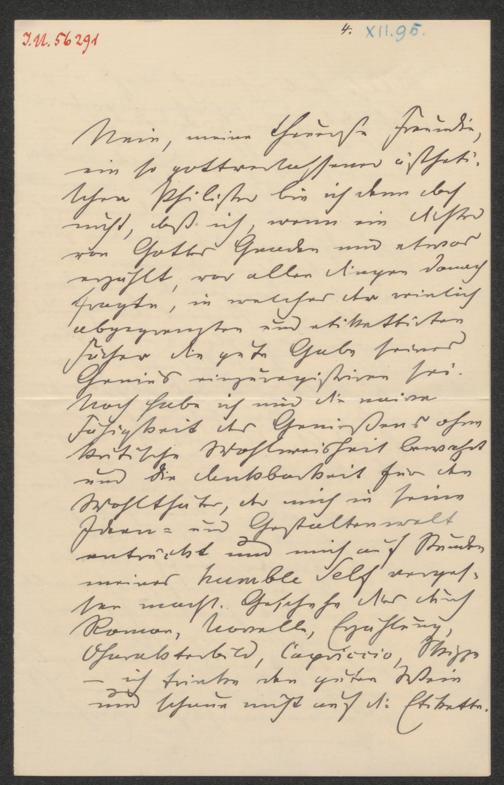 J.N. 56291
4. XII. 95.
Nein, meine theuerste Freundin,
ein so gottverlassener ästheti-
scher Philister bin ich denn doch
nicht, daß ich, wenn ein Dichter
von Gottes Gnaden mir etwas
erzählt, vor allen Dingen danach
fragte, in welches der reinlich
abgegrenzten und etikettirten
Fächer die gute Gabe seines
Genius einzuregistriren sei.
Noch habe ich mir die naive
Fähigkeit des Genießens ohne
kritische Wohlweisheit bewahrt
und die Dankbarkeit für den
Wohlthäter, der mich in seine
Ideen- und Gestaltenwelt
entrückt und mich auf Stunden
meines humble Self verges-
sen macht. Geschehe dies durch
Roman, Novelle, Erzählung,
Charakterbild, Capriccio, Skizze
– ich trinke den guten Wein
und schaue nicht auf die Etikette.